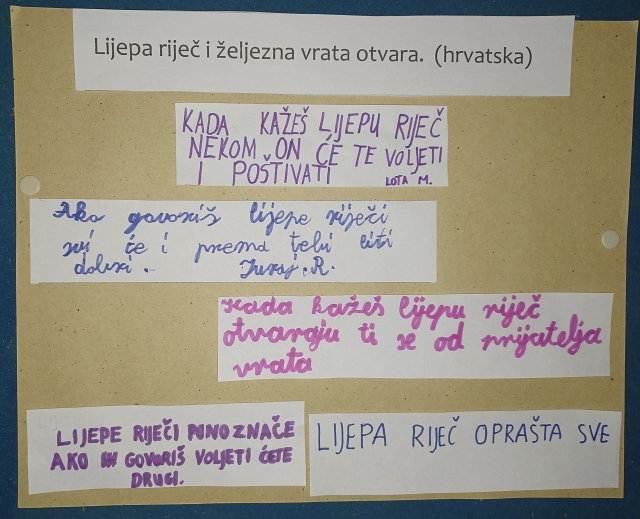 Lijepa riječ i željezna vrata otvara. (hrvatska)
KADA KAŽEŠ LIJEPU RIJEČ
NEKOM ON ĆE TE VOLJETI
I POŠTIVATI LOTA M.
Ako govoriš lijepe riječi
svi će i prema tebi biti
dobri. Juraj.R.
Kada kažeš lijepu riječ
otvaraju ti se od prijatelja
vrata
LIJEPE RIJEČI PUNO ZNAČE
AKO IH GOVORIŠ VOLJETI ĆETE
DRUGI.
LIJEPA RIJEČ OPRAŠTA SVE